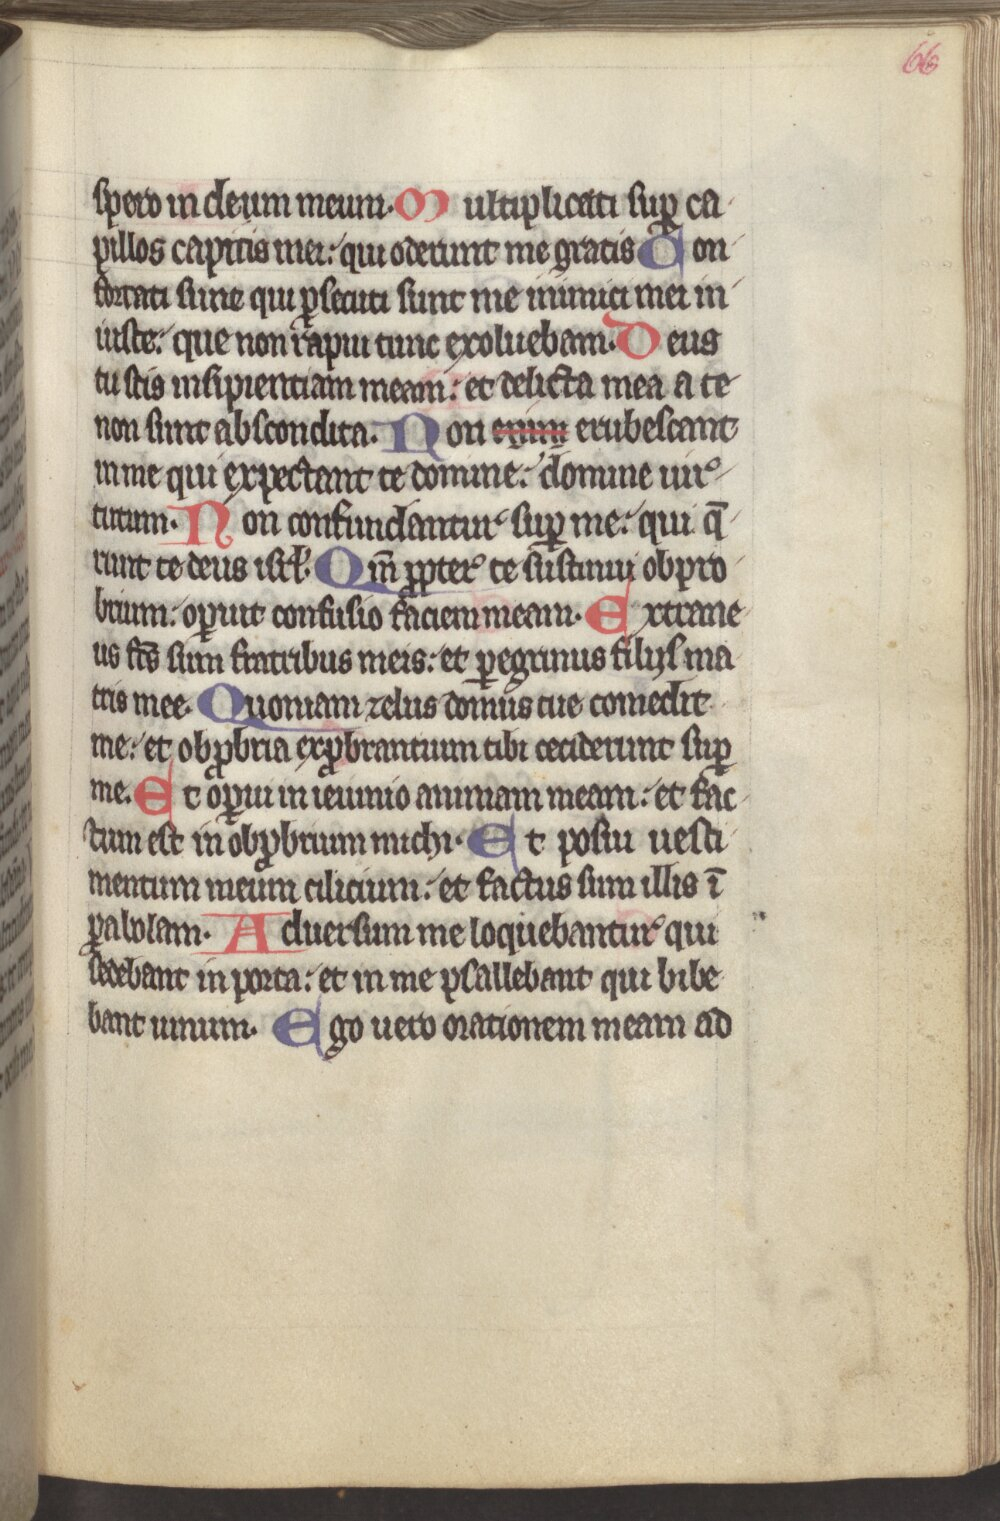 66
spero in deum meum. Multiplicati suꝑ ca
pillos capitis mei: qui oderunt me gratis Con
fortati sunt qui ꝑsecuti sunt me inimici mei in
iuste: que non rapui tunc exoluebam. Deus
tu scis insipientiam meam: et delicta mea a te
non sunt abscondita. Non enim erubescant
in me qui expectant te domine: domine uir
tutum. Non confundantur suꝑ me: qui q̄
runt te deus isrl̓. Qm̄ ꝓpter te sustinui obpro
brium: oꝑuit confusio faciem meam. Extrane
us fc̄s sum fratribus meis: et ꝑegrinus filijs ma
tris mee. Quoniam zelus domus tue comedit
me: et obꝓbria exꝓbrantium tibi ceciderunt suꝑ
me. Et oꝑui in ieiunio animam meam: et fac
tum est in obꝓbrium michi. Et posui uesti
mentum meum cilicium: et factus sum illis ī
ꝑabolam. Aduersum me loquebantur qui
sedebant in porta: et in me psallebant qui bibe
bant uinum. Ego uero orationem meam ad